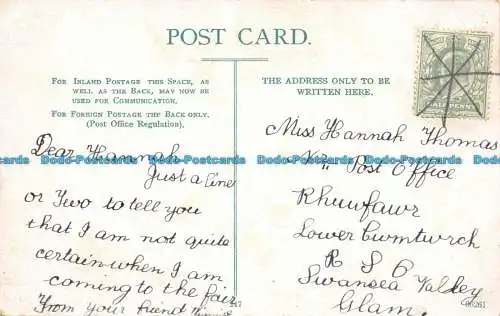 POST CARD.
FOR INLAND POSTAGE THIS SPACE, AS
WELL AS THE BACK, MAY NOW BE
USED FOR COMMUNICATION.
FOR FOREIGN POSTAGE THE BACK ONLY.
(Post Office Regulation).
Dear Hannah
Just a line
or Two to tell you
that I am not quite
certain when I am
coming to the fair
From your friend
THE ADDRESS ONLY TO BE
WRITTEN HERE.
HALFPENNY
Miss Hannah Thomas
Post Office
Rhiwfawr
Lower Cwmtwrch
R S O
Swansea Valley
Glam.
Bdo-Postcards Bdo-Postcards Bdo-Postcards